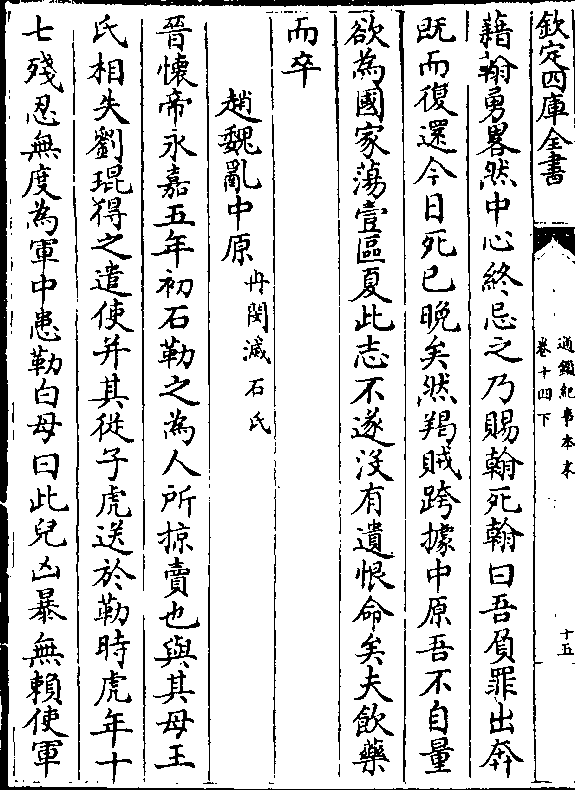 欽定四庫全書
通鑑紀事本末
卷十四下
十五
藉翰勇畧然中心終忌之乃賜翰死翰曰吾負罪出奔
既而復還今日死已晚矣然羯賊跨據中原吾不自量
欲為國家蕩壹區夏此志不遂沒有遺恨命矣夫飲藥
而卒
趙魏亂中原冉閔滅石氏
晉懷帝永嘉五年初石勒之為人所掠賣也與其母王
氏相失劉琨得之遣使并其從子虎送於勒時虎年十
七殘忍無度為軍中患勒白母曰此兒凶暴無賴使軍